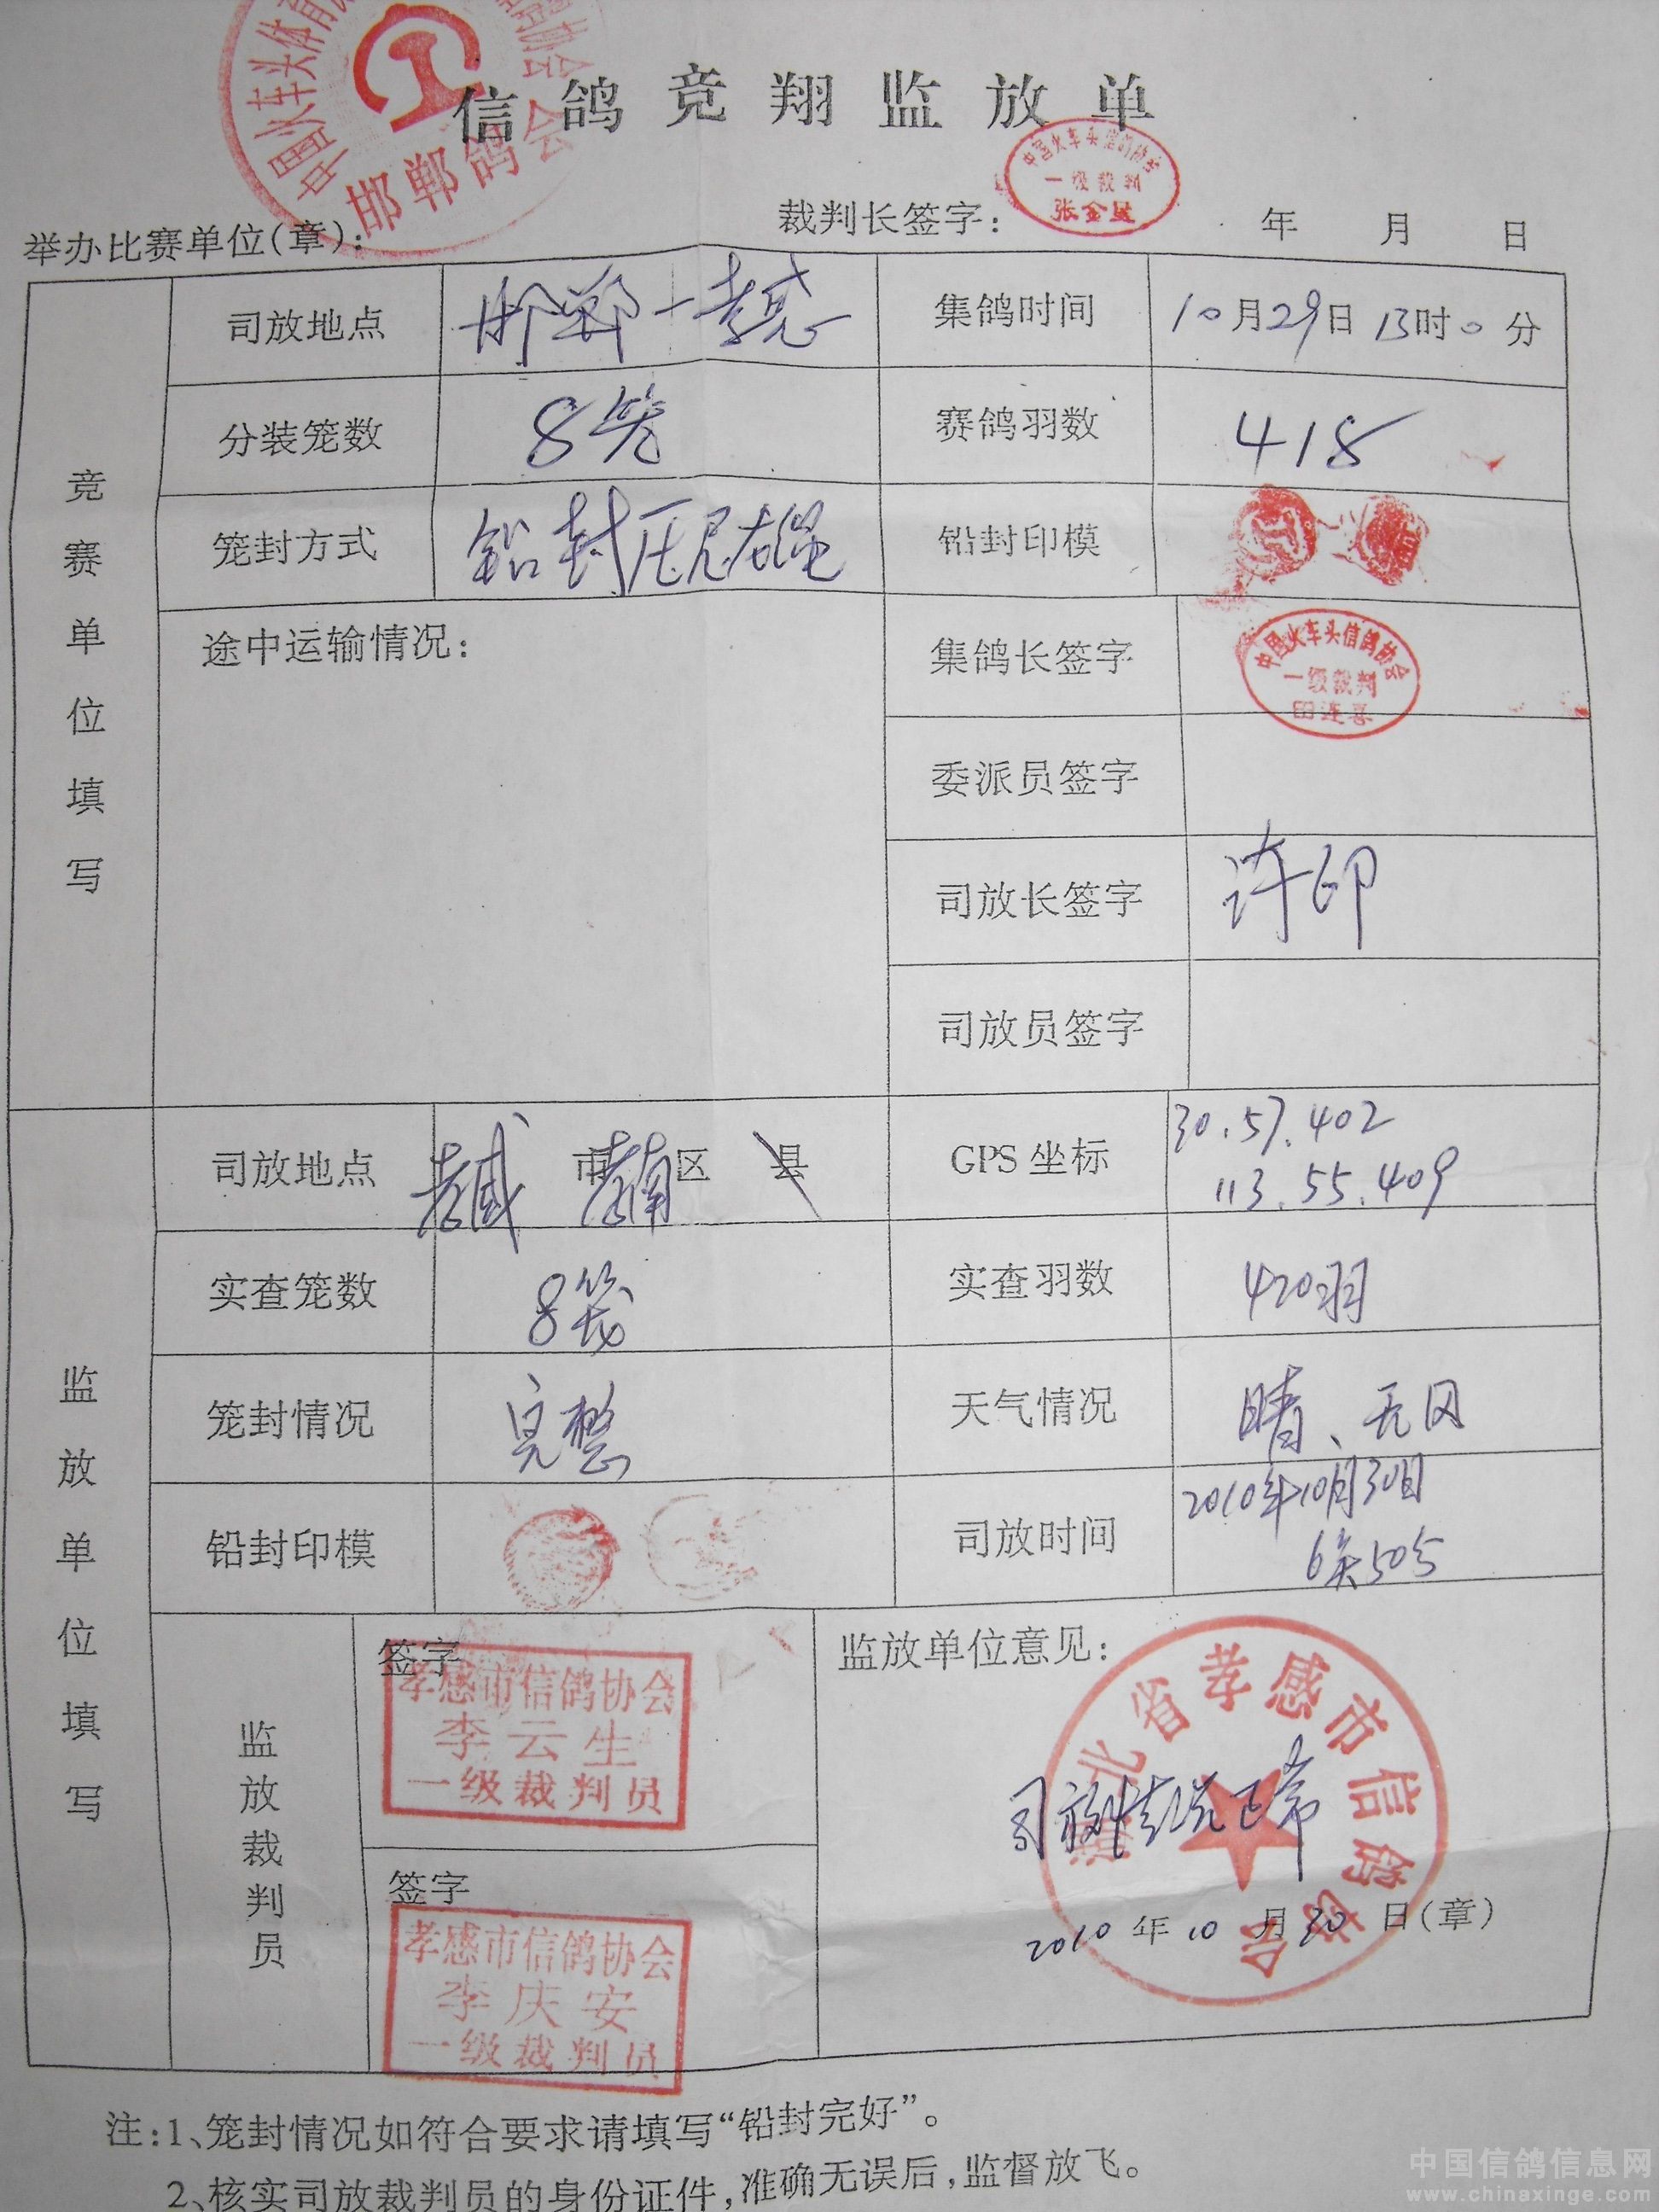 信鸽竞翔监放单
中国火车头体育
鸽协会
邯郸鸽会
举办比赛单位(章):
裁判长签字:
中国火车头信鸽协会
一级裁判
张金
年 月 日
竞赛单位填写
司放地点 邯郸—孝感 集鸽时间 10月29日13时0分
分装笼数 8笼 赛鸽羽数 418
笼封方式 铅封压尼龙绳 铅封印模
途中运输情况:
集鸽长签字
中国火车头信鸽协会
一级裁判
田连喜
委派员签字
司放长签字 许印
司放员签字
监放单位填写
司放地点 孝感 市 孝南 区 县 GPS坐标 30.57.402
113.55.409
实查笼数 8笼 实查羽数 420羽
笼封情况 完整 天气情况 晴、无风
铅封印模 司放时间 2010年10月30日
6点50分
监放裁判员
签字
孝感市信鸽协会
李云生
一级裁判员
签字
孝感市信鸽协会
李庆安
一级裁判员
监放单位意见:
湖北省孝感市信鸽协会
司放情况正常
2010年10月30日(章)
注:1、笼封情况如符合要求请填写“铅封完好”。
2、核实司放裁判员的身份证件,准确无误后,监督放飞。
中国信鸽信息网
www.chinaxinge.com